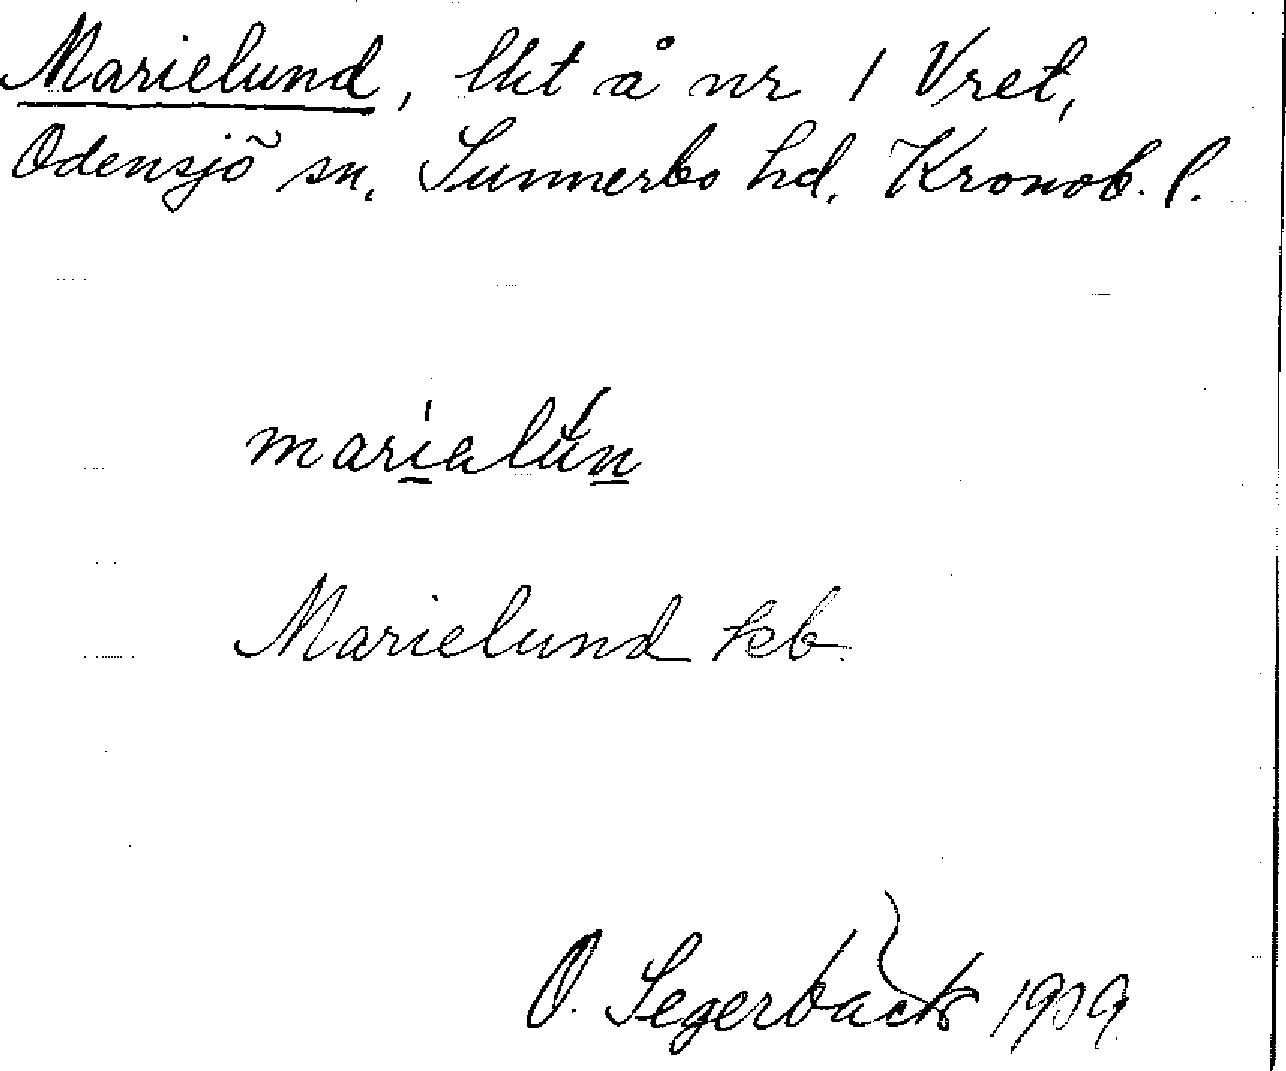 Marielund, lht å nr 1 Vret,
Odensjö sn. Sunnerbo hd. Kronob. l.
marialun
Marielund kb.
O. Segerbäck 1909